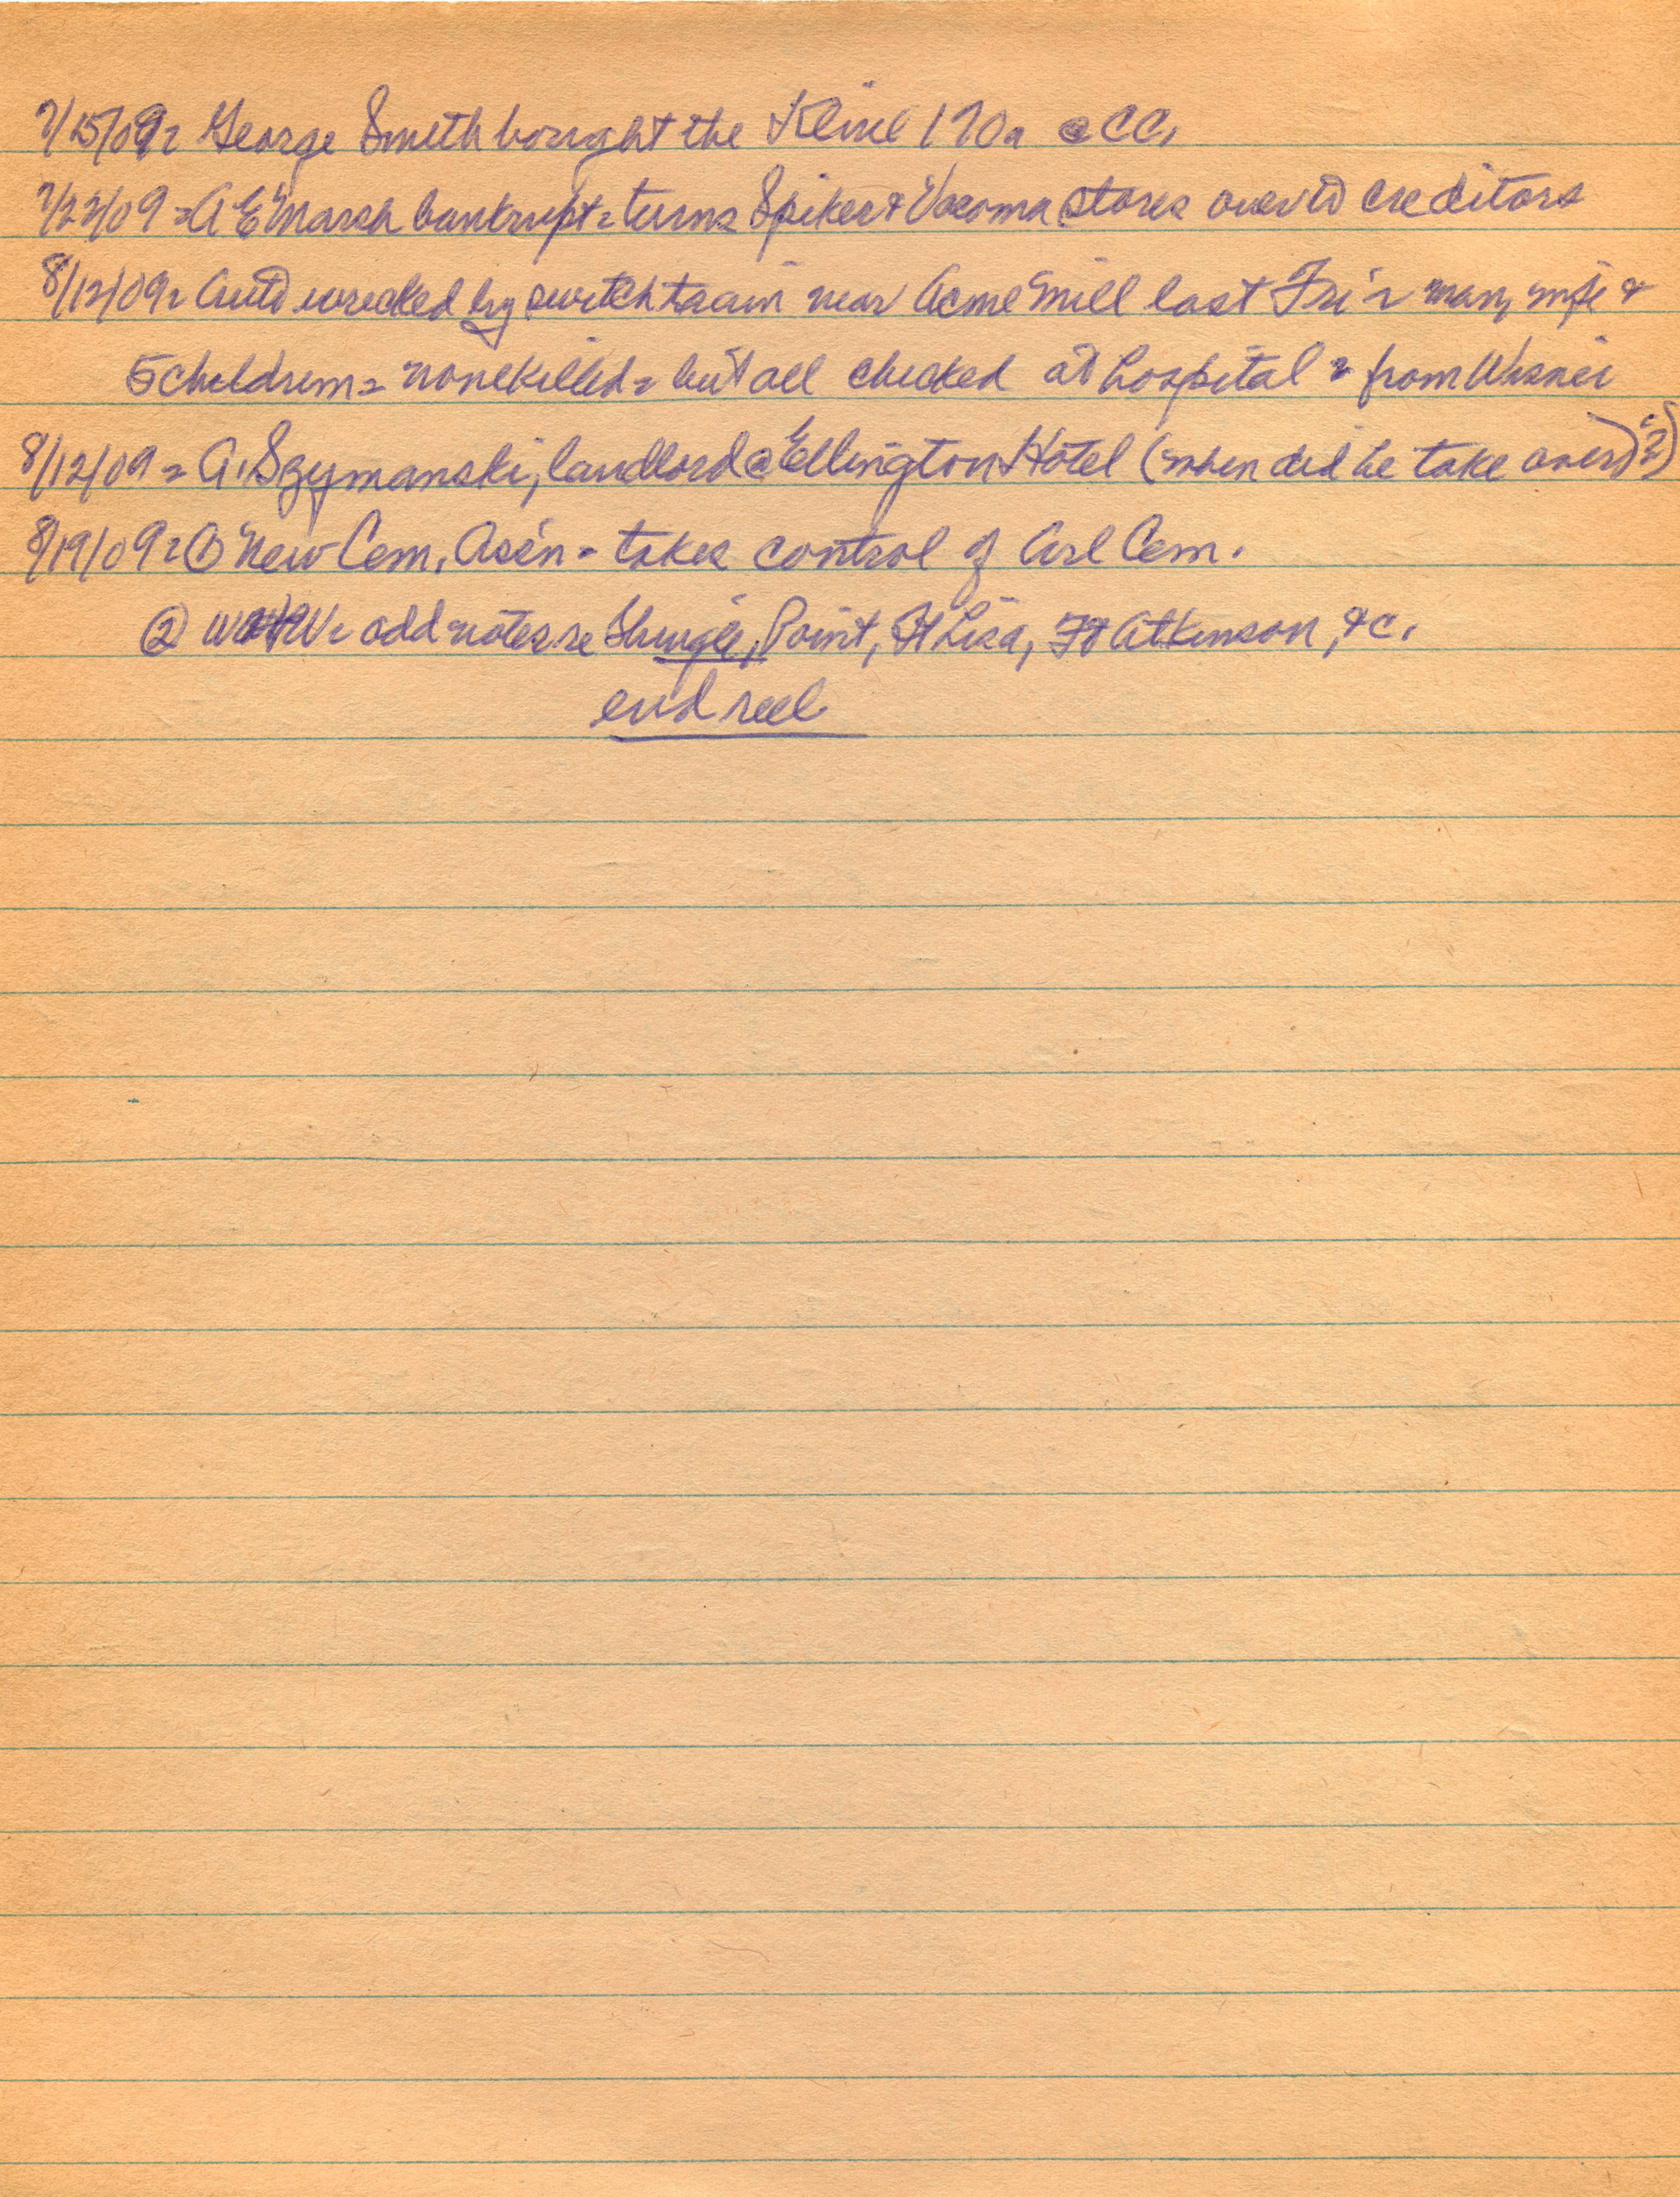 7/15/09= George Smith bought the Kline 170a @ CC.
7/22/09 = A E Marsh bankrupt = turns Spiker & Vacoma stores over to creditors
8/12/09= Auto wrecked by switch train near Acme Mill last Fri = man, wife &
5 children = none killed = but all checked at hospital = from Wisner
8/12/09 = A. Szymanski, landlord @ Ellington Hotel (when did he take over)(?)
8/19/09= ① New Cem. Ass'n - takes control of Arl Cem.
② = add notes re Shingle, Point, Ft Lisa, Ft Atkinson, &c.
end reel